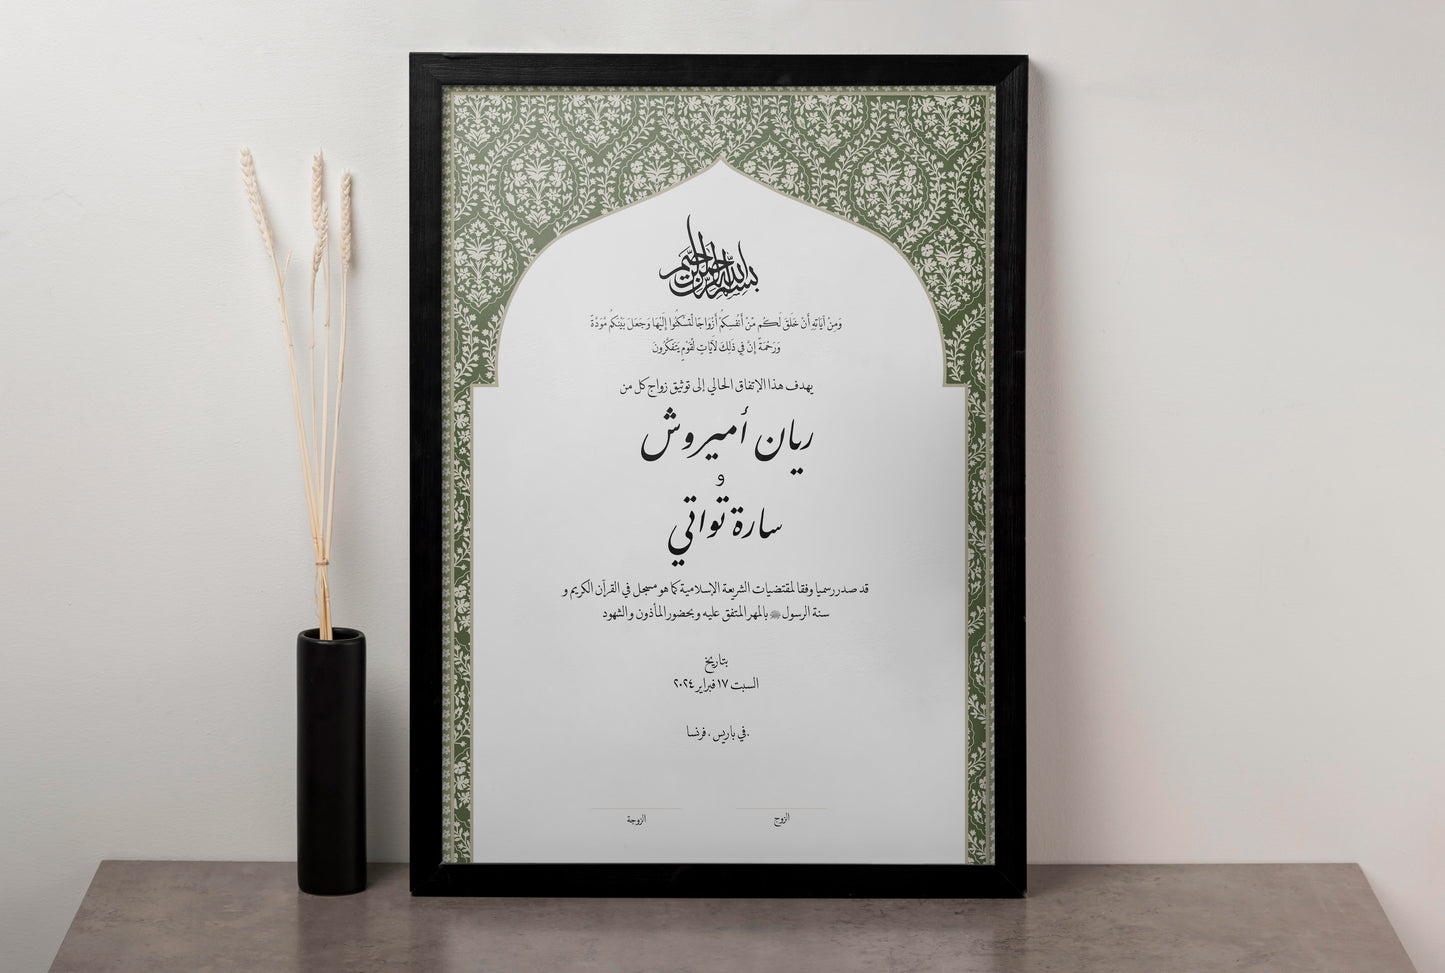 بسم الله الرحمن الرحيم
وَمِنْ آيَاتِهِ أَنْ خَلَقَ لَكُم مِّنْ أَنفُسِكُمْ أَزْوَاجًا لِّتَسْكُنُوا إِلَيْهَا وَجَعَلَ بَيْنَكُم مَّوَدَّةً
وَرَحْمَةً إِنَّ فِي ذَٰلِكَ لَآيَاتٍ لِّقَوْمٍ يَتَفَكَّرُونَ
يهدف هذا الإتفاق الحالي إلى توثيق زواج كل من
ريان أميروش
و
سارة تواتي
قد صدر رسميا وفقا لمقتضيات الشريعة الإسلامية كما هو مسجل في القرآن الكريم و
سنة الرسول ﷺ بالمهر المتفق عليه وبحضور المأذون والشهود
بتاريخ
السبت ١٧ فبراير ٢٠٢٤
في باريس ، فرنسا.
الزوج
الزوجة